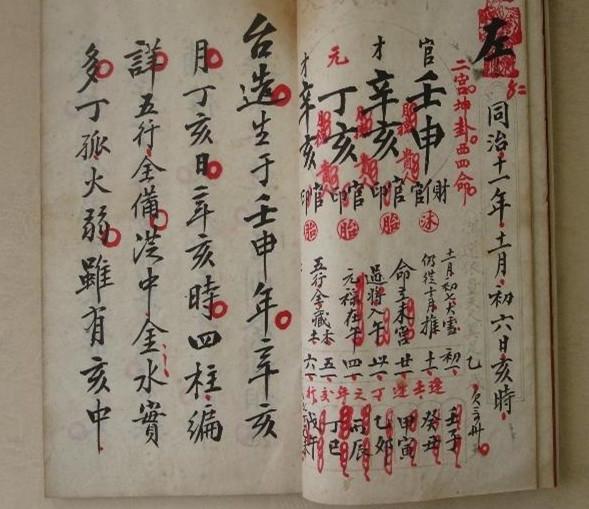 左
同治十一年十一月初六日亥時
二宮坤卦西四命
官 壬申 財印官 沐
才 辛亥 官印 胎
元 丁亥 官印 胎
才 辛亥 官印 胎
十一月初七大雪
仍從十月推
命立未宮
過將入午
元祿在午
五行金藏木土
初一 壬子
十一 癸丑
廿一 甲寅
卅一 乙卯
四一 丙辰
五一 丁巳
六一 戊午
台造生于壬申年辛亥
月丁亥日辛亥時四柱編
詳五行全備洪中金水實
多丁孤火弱雖有亥中